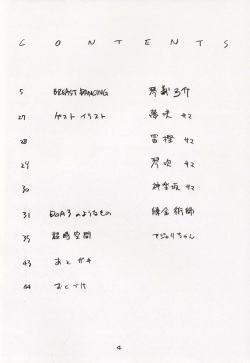 CONTENTS
5 BREAST DANCING 琴義弓介
27 ゲストイラスト 夢咲 サマ
28 富樫 サマ
29 琴吹 サマ
30 神堂坂 サマ
31 DOA3のようなもの 錬金術師
35 超時空間 マジョリちゃん
43 あとがき
44 おくづけ
4